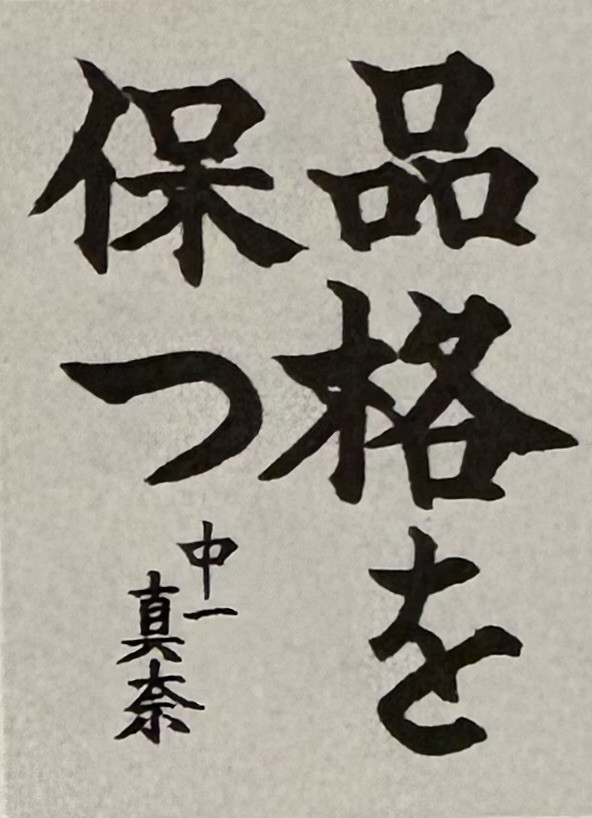 品格を
保つ
中一
真奈